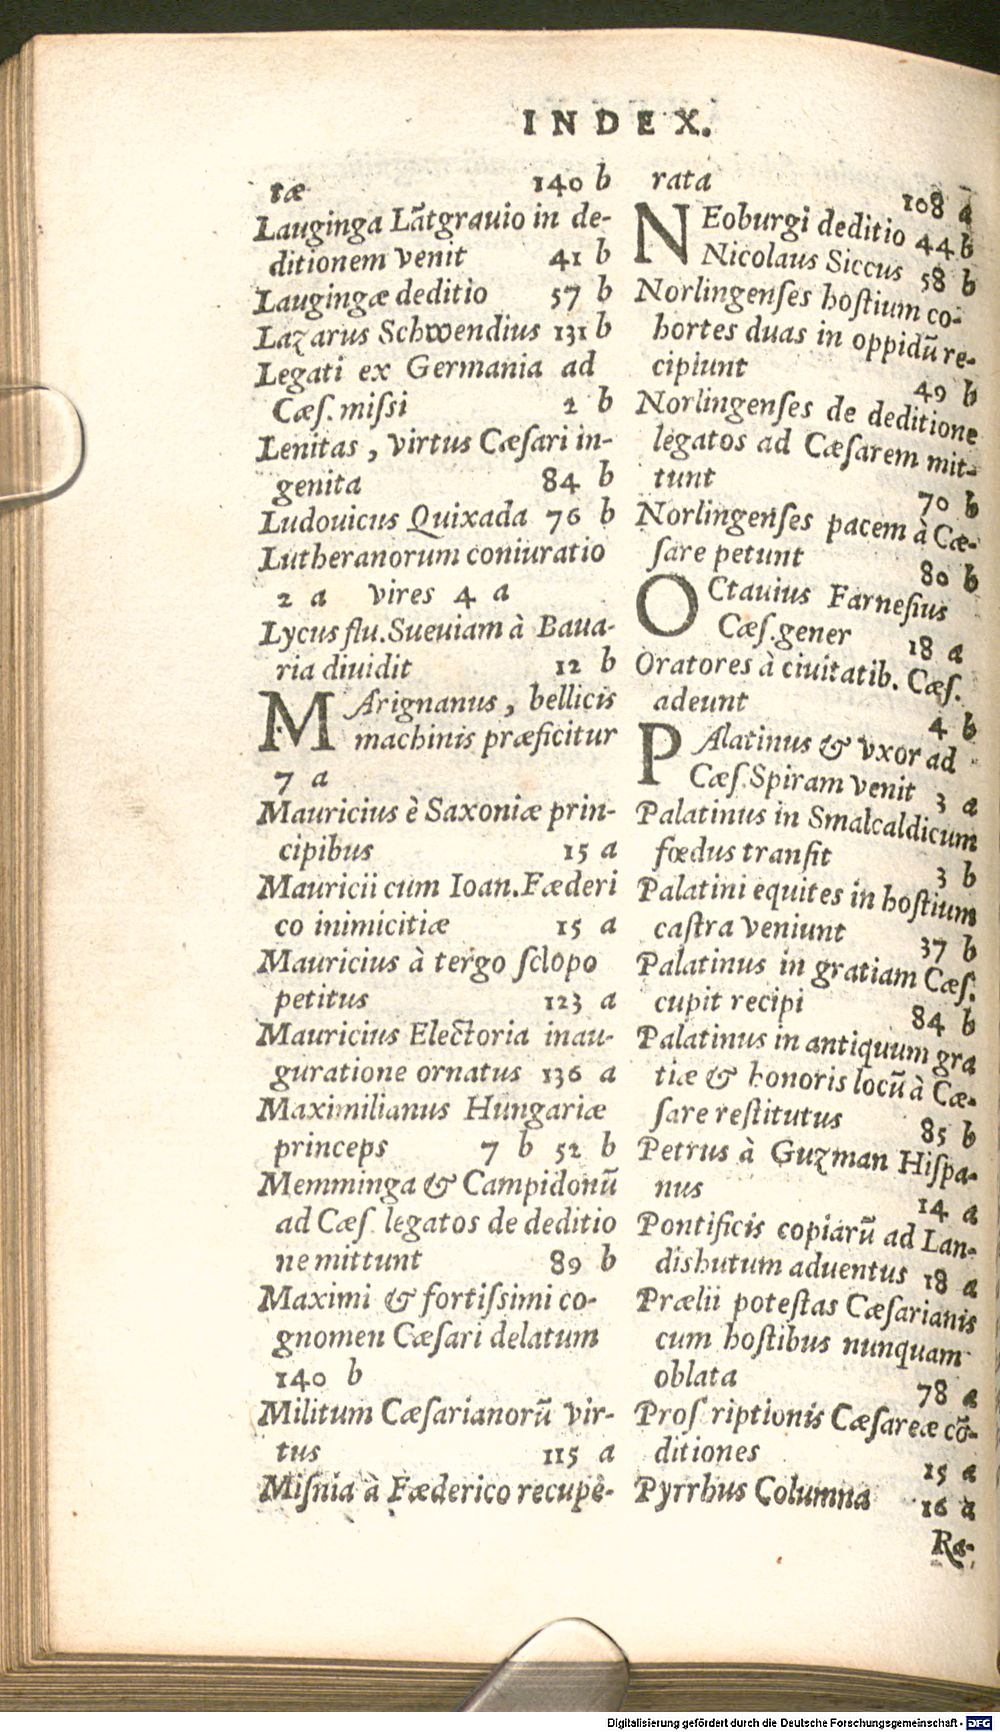 INDEX.
tæ 140 b
Lauginga Lãtgrauio in de-
ditionem venit 41 b
Laugingæ deditio 57 b
Lazarus Schwendius 131 b
Legati ex Germania ad
Cæſ. miſsi 2 b
Lenitas, virtus Cæſari in-
genita 84 b
Ludouicus Quixada 76 b
Lutheranorum coniuratio
2 a vires 4 a
Lycus flu. Sueuiam à Baua-
ria diuidit 12 b
MArignanus, bellicis
machinis præficitur
7 a
Mauricius è Saxoniæ prin-
cipibus 15 a
Mauricii cum Ioan. Fæderi
co inimicitiæ 15 a
Mauricius à tergo ſclopo
petitus 123 a
Mauricius Electoria inau-
guratione ornatus 136 a
Maximilianus Hungariæ
princeps 7 b 52 b
Memminga & Campidonũ
ad Cæſ. legatos de deditio
ne mittunt 89 b
Maximi & fortiſsimi co-
gnomen Cæſari delatum
140 b
Militum Cæſarianorũ vir-
tus 115 a
Miſnia à Fæderico recupe-
rata 108 a
NEoburgi deditio 44 b
Nicolaus Siccus 58 b
Norlingenſes hoſtium co-
hortes duas in oppidũ re-
cipiunt 49 b
Norlingenſes de deditione
legatos ad Cæſarem mit-
tunt 70 b
Norlingenſes pacem à Cæ-
ſare petunt 80 b
OCtauius Farneſius
Cæſ. gener 18 a
Oratores à ciuitatib. Cæſ.
adeunt 4 b
PAlatinus & vxor ad
Cæſ. Spiram venit 3 a
Palatinus in Smalcaldicum
fœdus tranſit 3 b
Palatini equites in hoſtium
caſtra veniunt 37 b
Palatinus in gratiam Cæſ.
cupit recipi 84 b
Palatinus in antiquum gra
tiæ & honoris locũ à Cæ-
ſare reſtitutus 85 b
Petrus à Guzman Hiſpa-
nus 14 a
Pontificis copiarũ ad Lan-
dishutum aduentus 18 a
Prælii poteſtas Cæſarianis
cum hoſtibus nunquam
oblata 78 a
Proſ riptionis Cæſareæ cõ-
ditiones 15 a
Pyrrhus Columna 16 a
Ra-
Digitalisierung gefördert durch die Deutsche Forschungsgemeinschaft - DFG